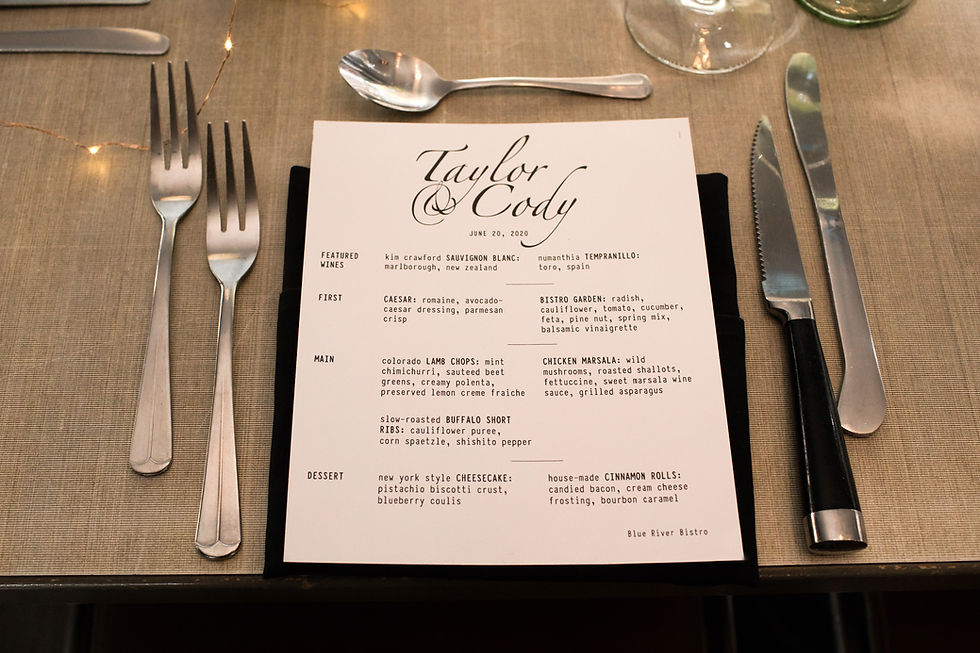 Taylor
& Cody
JUNE 20, 2020
FEATURED
WINES
kim crawford SAUVIGNON BLANC:
marlborough, new zealand
numanthia TEMPRANILLO:
toro, spain
FIRST
CAESAR: romaine, avocado-
caesar dressing, parmesan
crisp
BISTRO GARDEN: radish,
cauliflower, tomato, cucumber,
feta, pine nut, spring mix,
balsamic vinaigrette
MAIN
colorado LAMB CHOPS: mint
chimichurri, sauteed beet
greens, creamy polenta,
preserved lemon creme fraiche
CHICKEN MARSALA: wild
mushrooms, roasted shallots,
fettuccine, sweet marsala wine
sauce, grilled asparagus
slow-roasted BUFFALO SHORT
RIBS: cauliflower puree,
corn spaetzle, shishito pepper
DESSERT
new york style CHEESECAKE:
pistachio biscotti crust,
blueberry coulis
house-made CINNAMON ROLLS:
candied bacon, cream cheese
frosting, bourbon caramel
Blue River Bistro